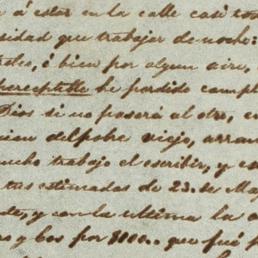 á estar en la calle casi to
sidad que trabajar de noche:
o bien por algun aire,
he perdido compl
Dios si no pasará al otro, con
del pobre viejo, arran
ucho trabajo el escribir, y es
tus estimadas de 23. de Ma
y con la ultima la a
y bos por $100.. que fué p